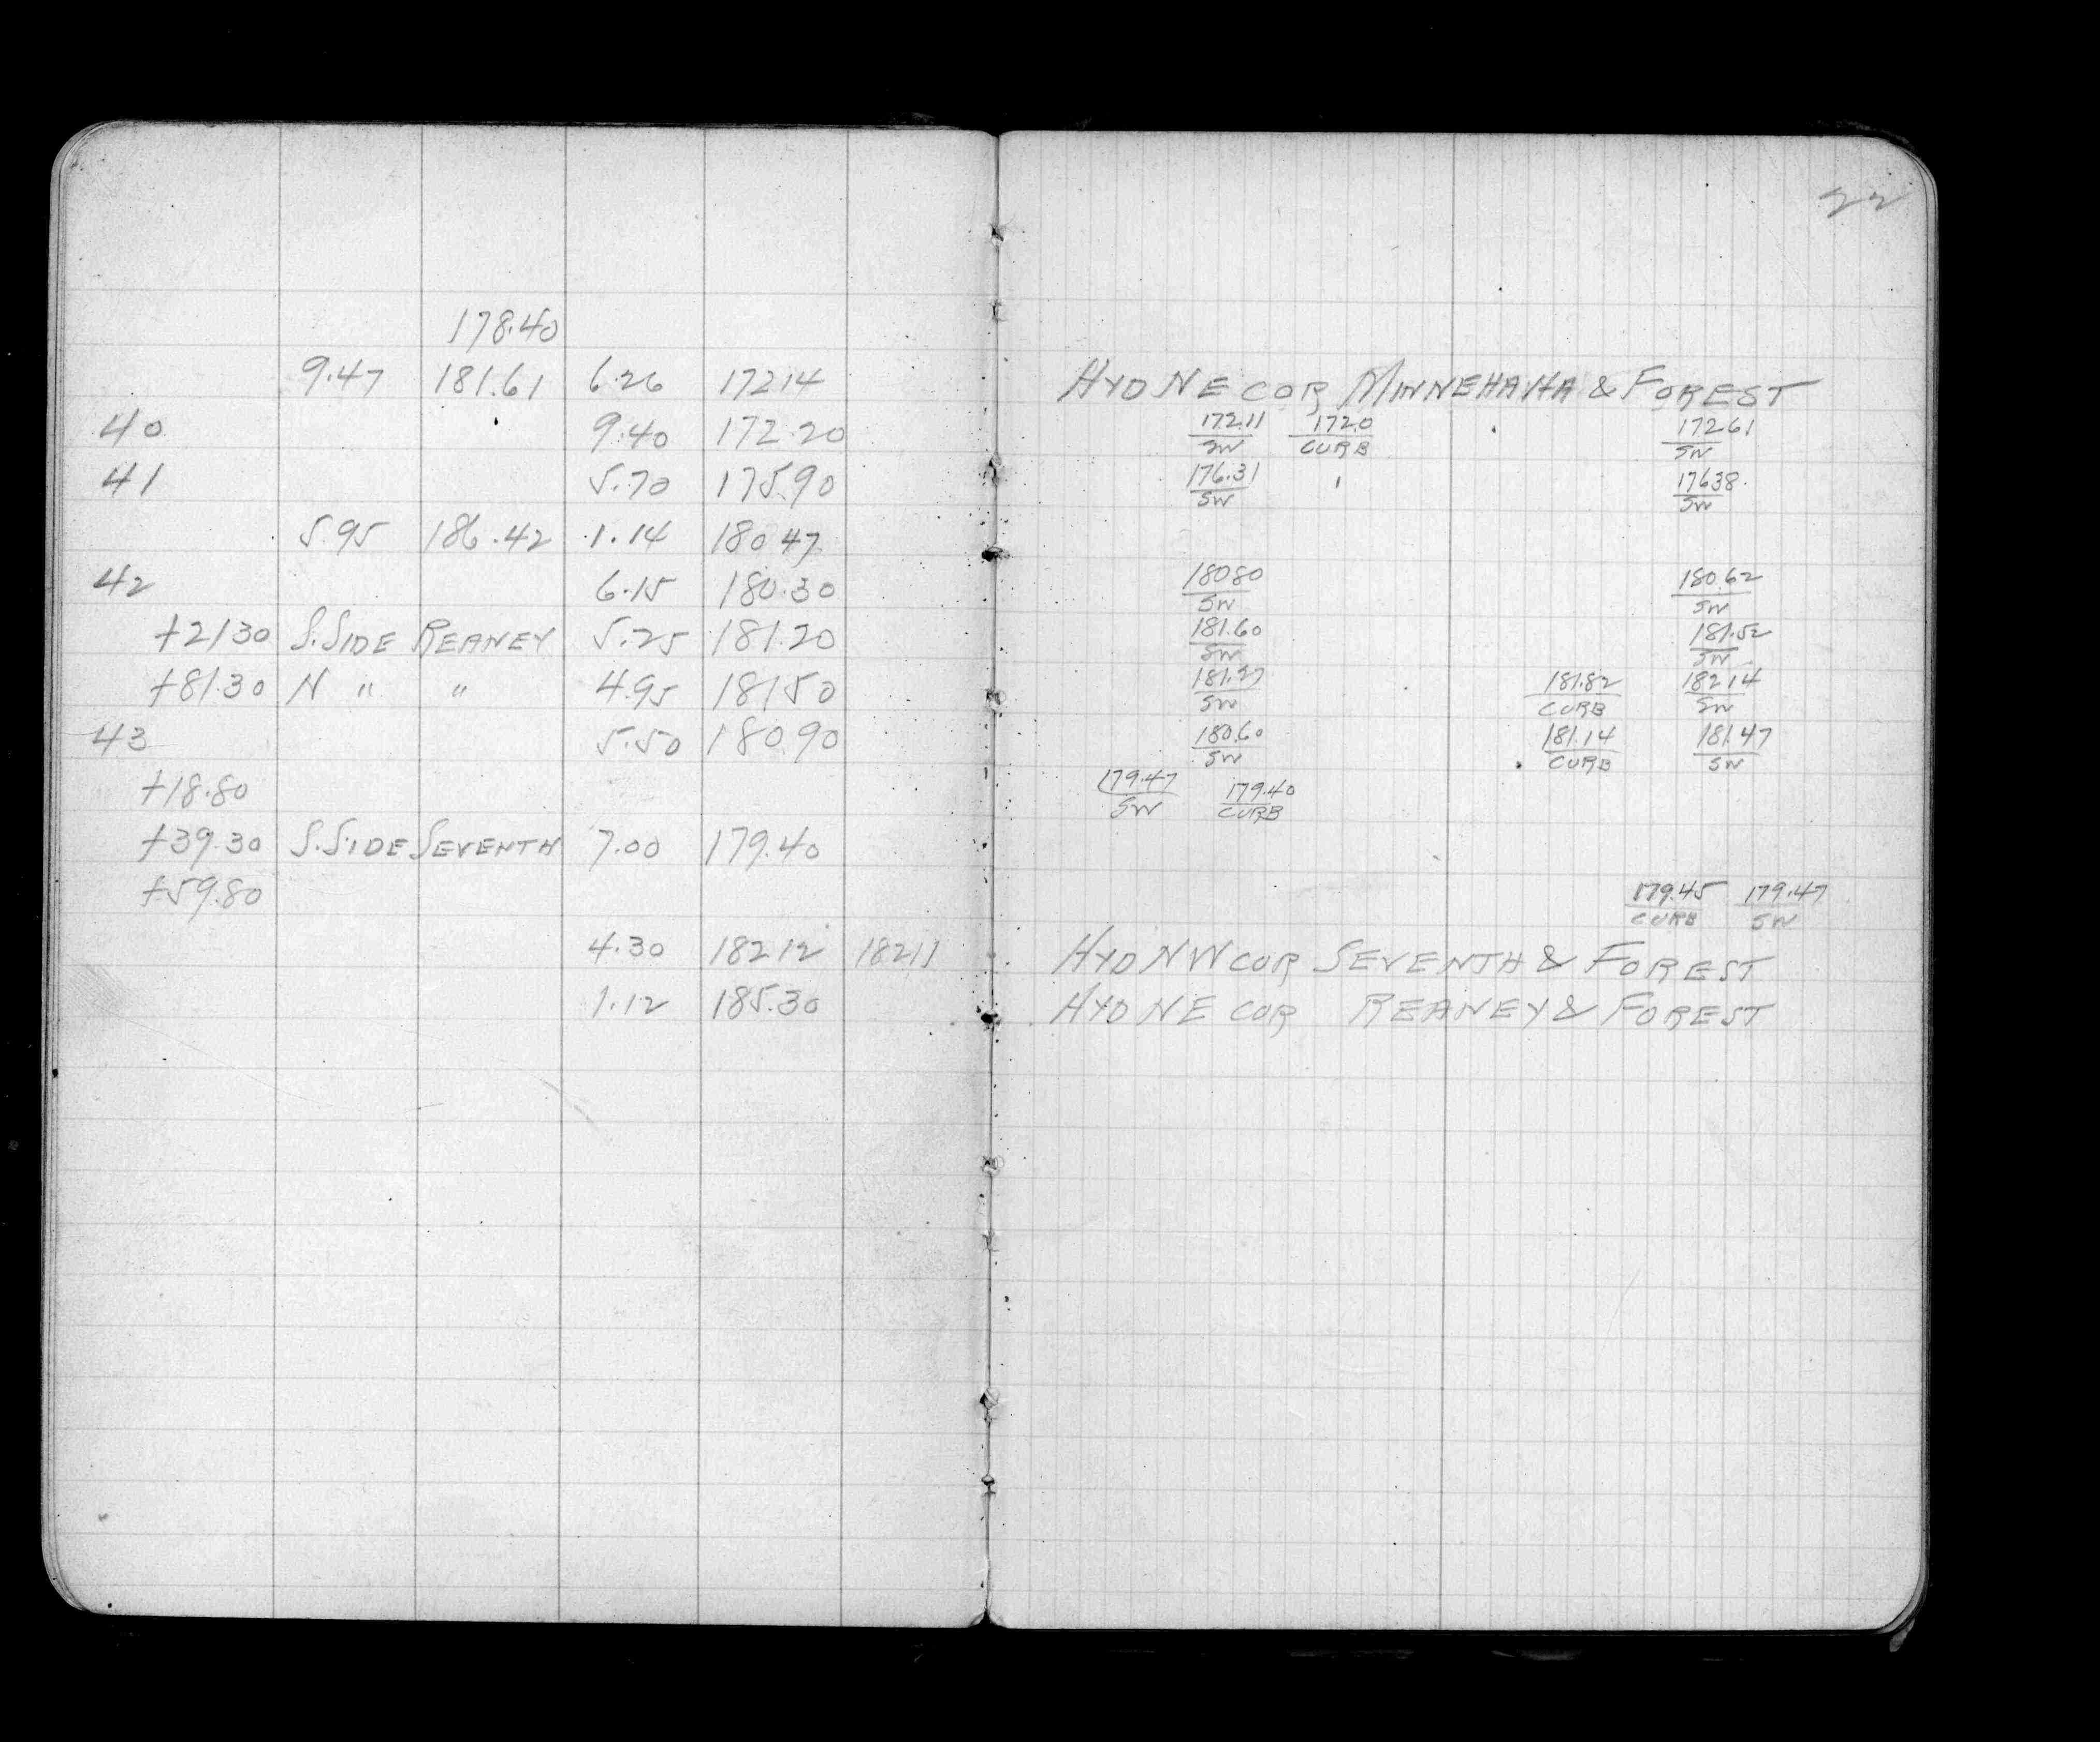 22
178.40
9.47 181.61 6.26 172 14 HYD NE COR MINNEHAHA & FOREST
40 9.40 172.20 172.11 172.0 172 61
SW CURB SW
41 5.70 175.90 176.31 176 38
SW SW
5.95 186.42 1.14 180 47
42 6.15 180.30 180 80 180.62
SW SW
+21 30 S. SIDE REANEY 5.25 181.20 181.60 181.52
SW SW
+81.30 N " " 4.95 181 50 181.27 181.82 182 14
SW CURB SW
43 5.50 180.90 180.60 181.14 181.47
SW CURB SW
+18.80 179.47 179.40
SW CURB
+39.30 S. SIDE SEVENTH 7.00 179.40
+59.80 179.45 179.47
CURB SW
4.30 182 12 182 11 HYD NW COR SEVENTH & FOREST
1.12 185.30 HYD NE COR REANEY & FOREST